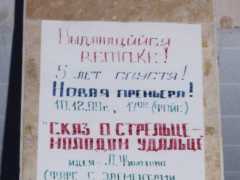 Выдающийся
ремаке!
5 лет спустя!
Новая премьера!
10.12.99г., 17⁰⁰ (фойе)
"Сказ о стрельце-
молодом удальце
идея - Л. Филатова
(фарс с элементами